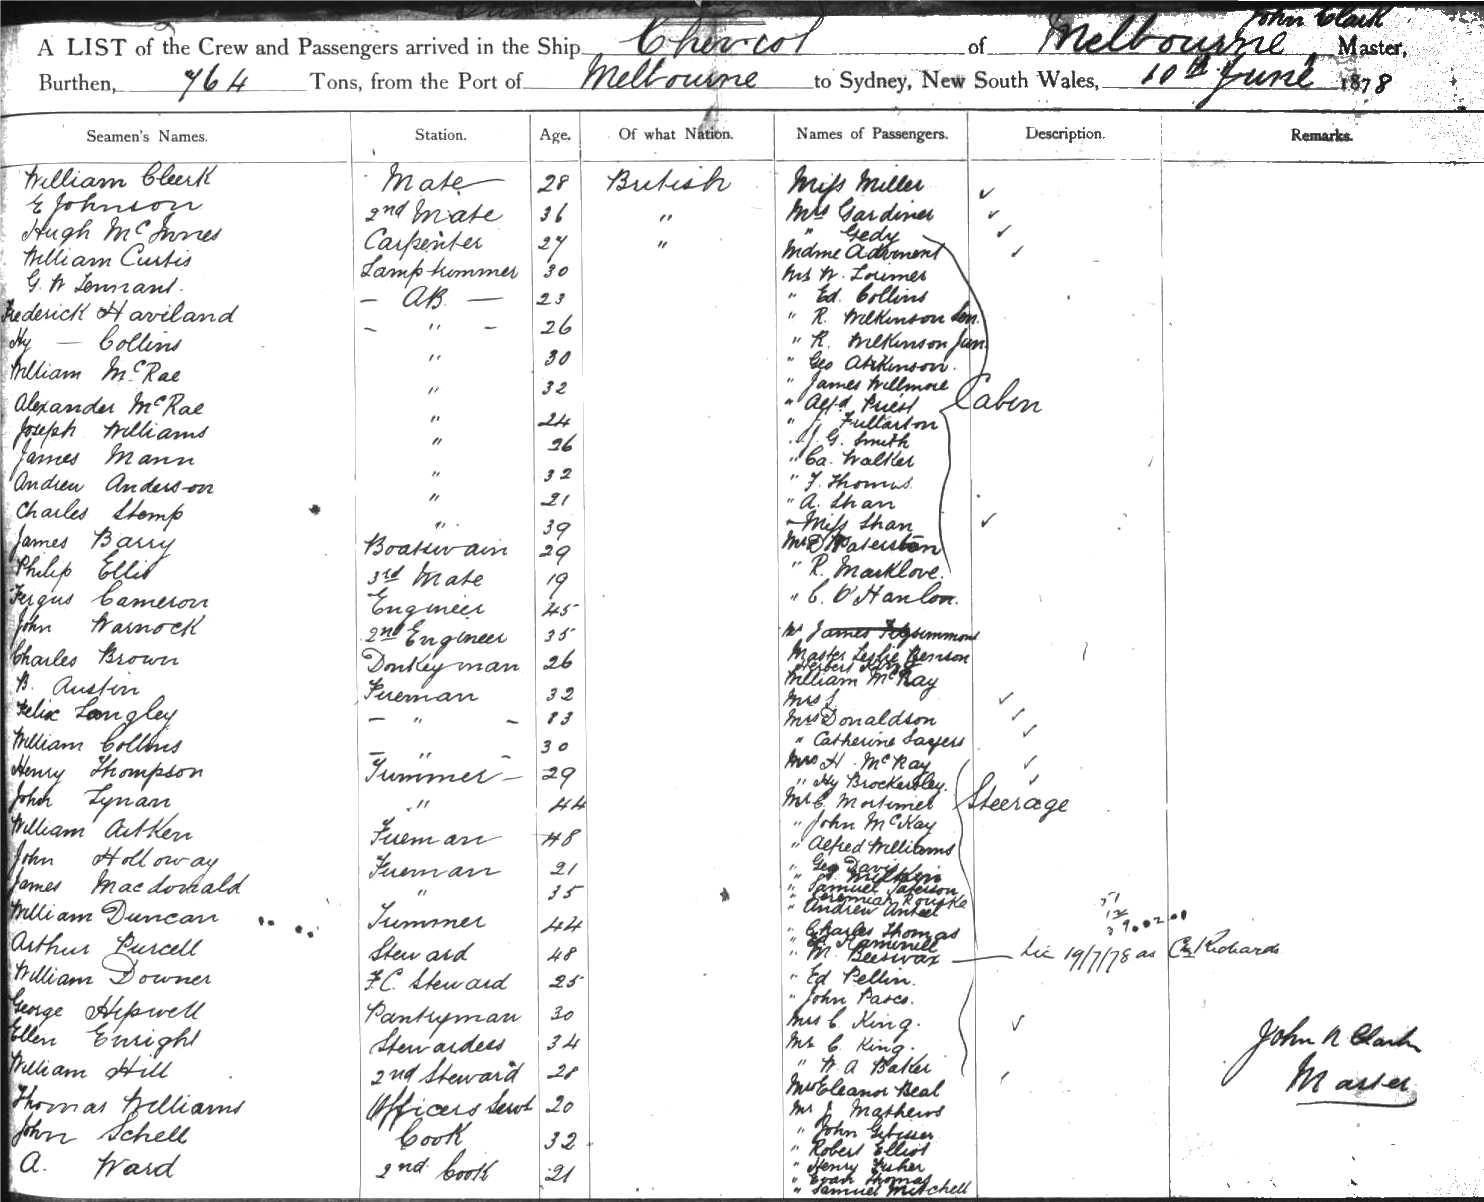 John Clark
A LIST of the Crew and Passengers arrived in the Ship Cheviot of Melbourne, Master,
Burthen, 764 Tons, from the Port of Melbourne to Sydney, New South Wales, 10th June 1878
Seamen's Names. Station. Age. Of what Nation. Names of Passengers. Description. Remarks.
William Cleerk Mate 28 British Miss Miller ✓
E Johnson 2nd Mate 36 " Mrs Gardiner ✓
Hugh McInnes Carpenter 27 " " Gedy ✓
William Curtis Lamptrimmer 30 Mdme Adement ✓
G. W Tennant. — AB — 23 Mr W. Lorimer
Frederick Haviland — " — 26 " Ed. Collins
Hy — Collins " 30 " R. Wilkinson Sen.
William McRae " 32 " R. Wilkinson Jun.
Alexander McRae " 24 " Geo Atkinson.
Joseph Williams " 26 " James Willmore
James Mann " 32 " Alfd Priest Cabin
Andrew Anderson " 21 " J. Fullarton
Charles Stemp " 39 " J. G. Smith
James Barry Boatswain 29 " Ca. Walker
Philip Ellis 3rd Mate 19 " F. Thomas
Fergus Cameron Engineer 45 " A. Shan
John Warnock 2nd Engineer 35 Miss Shan ✓
Charles Brown Donkeyman 26 Mr D Paterson
B. Austin Fireman 32 " R. Marklove.
Felix Langley — " — 23 " C. O'Hanlon.
William Collins — " — 30 Mr James Fitzsimmons
Henry Thompson Trimmer — 29 Master Leslie Benson
John Lynan " 44 Herbert King
William Aitken Fireman 48 William McKay
John Holloway Fireman 21 Mrs J ✓
James Macdonald " 35 Mrs Donaldson ✓
William Duncan Trimmer 44 " Catherine Sayers ✓
Arthur Purcell Steward 48 Mrs H. McKay ✓
William Downer F.C. Steward 25 " Hy Brockersley. ✓
George Hipwell Pantryman 30 Mr C. Mortimer Steerage
Ellen Enright Stewardess 34 " John McKay
William Hill 2nd Steward 28 " Alfred Williams
Thomas Williams Officers Servt 20 " Geo Davis
John Schell Cook 32
A. Ward 2nd Cook 21 " Samuel Paterson
" Jeremiah Rourke
" Andrew
" Charles Thomas
" M. Beeswax — 19/7/78 as Richards
" Ed Pellin.
" John Pasco.
Mrs C. King. ✓
Mr C. King.
" W A Baker
Mrs Eleanor Beal
Mr J Mathews
" John
" Robert Elliot
" Henry Fisher
" Evan Thomas
" Samuel Mitchell
John N Clark
Master